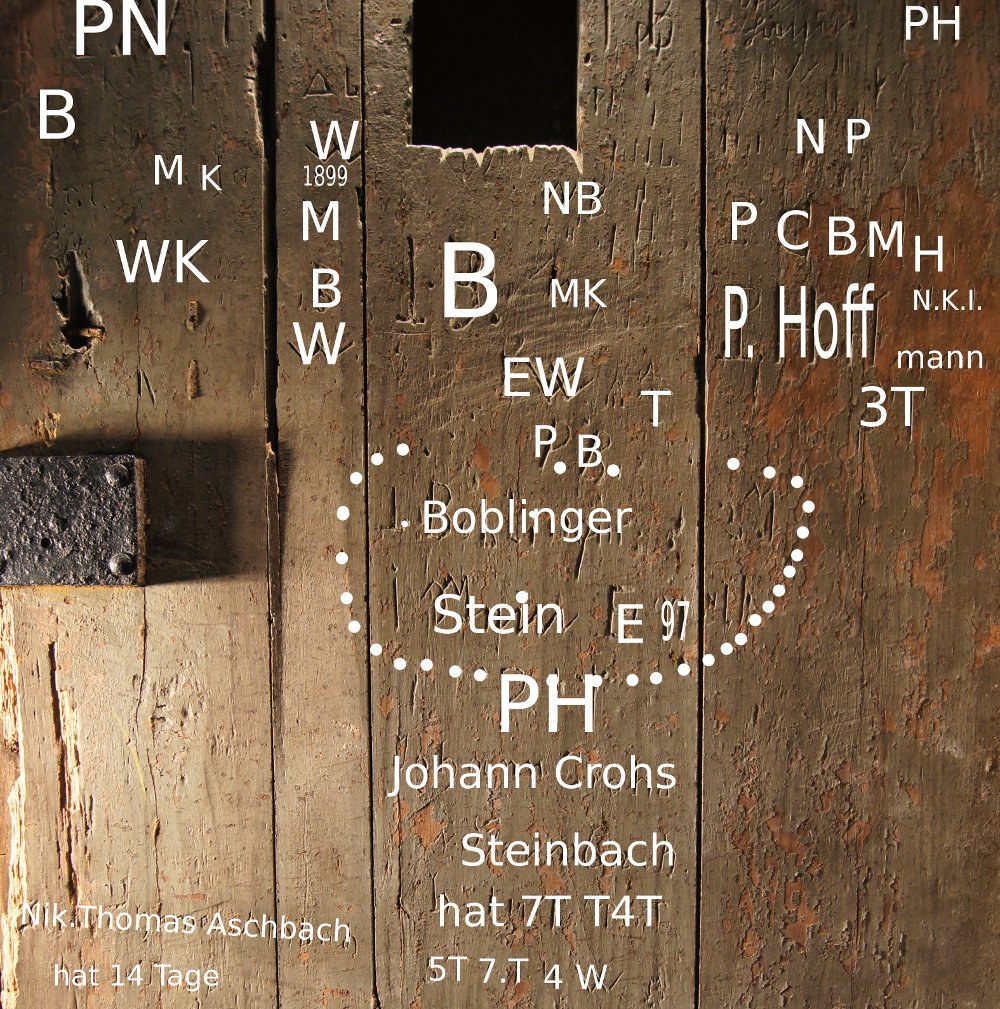 PN
PH
B
W
1899
N P
M K
NB
M
P C B M H
WK
B
B
MK
N.K.I.
P. Hoff
mann
W
EW
T
3T
P B
Boblinger
Stein E 97
PH
Johann Crohs
Steinbach
hat 7T T4T
Nik.Thomas Aschbach
hat 14 Tage
5T 7.T 4 W